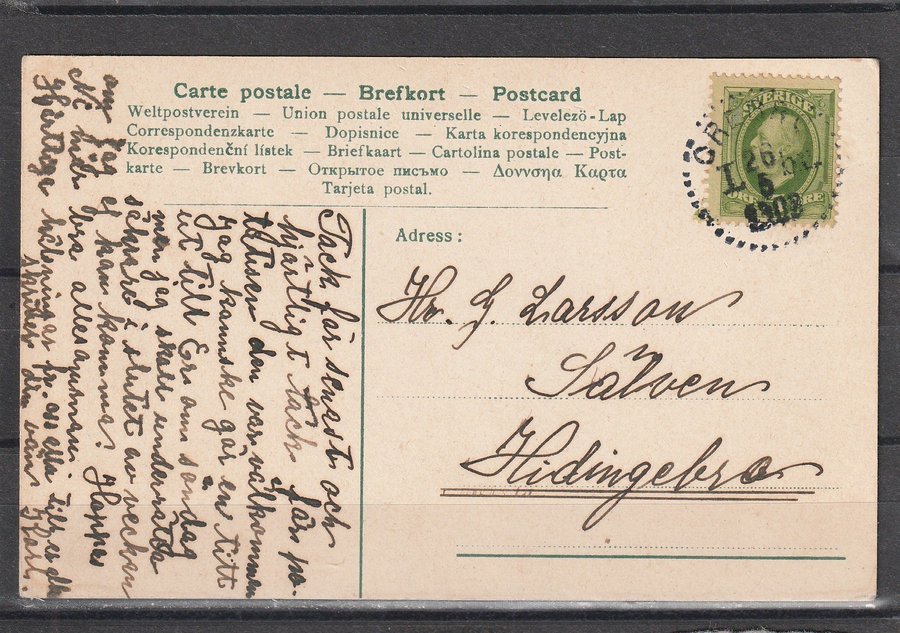 Carte postale — Brefkort — Postcard
Weltpostverein — Union postale universelle — Levelezö-Lap
Correspondenzkarte — Dopisnice — Karta korespondencyjna
Korespondenční lístek — Briefkaart — Cartolina postale — Post-
karte — Brevkort — Открытое письмо — Δοννσηα Καρτα
Tarjeta postal.
SVERIGE
26
5
Adress:
Hr. G. Larsson
Sälven
Hidingebro
Tack för senast och
hjärtligt tack för no-
titisen den var välkommen
Jag kanske går en titt
ut till Er om söndag
men jag skall underrätta
säkrare i slutet av veckan
om jag ej kan komma. Hoppas
Ni mår bra allesamman
Hjärtliga hälsningar till er alla
från